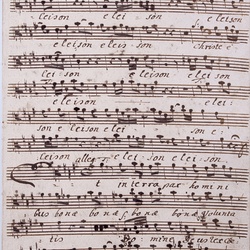 leison e lei son e leison
e leison e leis son Christe e
lei son e leison e lei son
e leison e lei:
son e leison e lei son e:
leison alleg: e lei son e leison.
t in terra pax homini
bus bonæ bonæ bonæ volunta
tis Domine Deus